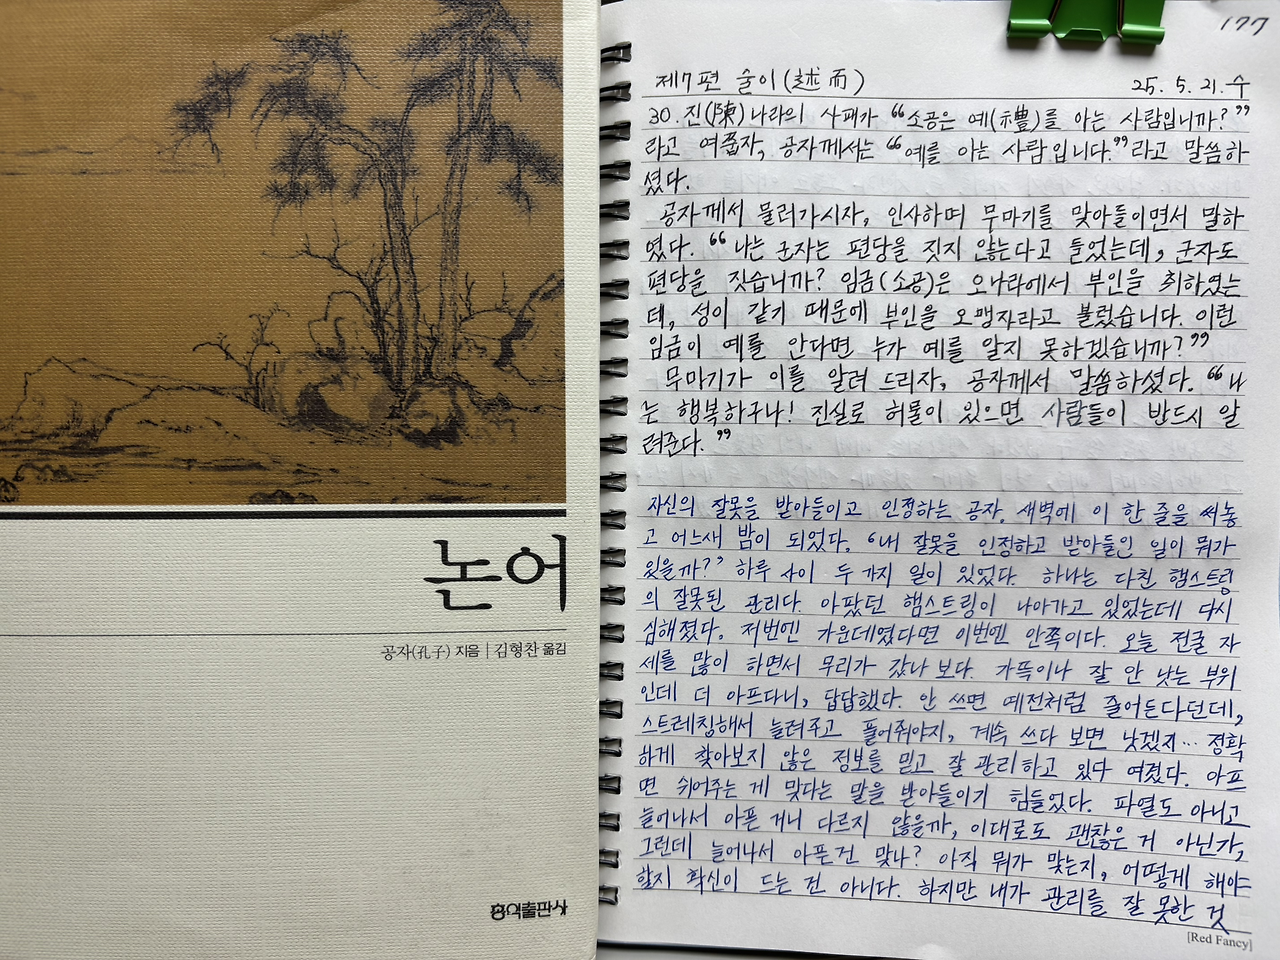 논어
공자(孔子) 지음 | 김형찬 옮김
홍익출판사
177
제7편 술이(述而) 25. 5. 21. 수
30. 진(陳)나라의 사패가 "소공은 예(禮)를 아는 사람입니까?"
라고 여쭙자, 공자께서는 "예를 아는 사람입니다."라고 말씀하
셨다.
공자께서 물러가시자, 인사하며 무마기를 맞아들이면서 말하
였다. "나는 군자는 편당을 짓지 않는다고 들었는데, 군자도
편당을 짓습니까? 임금(소공)은 오나라에서 부인을 취하였는
데, 성이 같기 때문에 부인을 오맹자라고 불렀습니다. 이런
임금이 예를 안다면 누가 예를 알지 못하겠습니까?"
무마기가 이를 알려 드리자, 공자께서 말씀하셨다. "나
는 행복하구나! 진실로 허물이 있으면 사람들이 반드시 알
려준다."
자신의 잘못을 받아들이고 인정하는 공자. 새벽에 이 한 줄을 써놓
고 어느새 밤이 되었다. '내 잘못을 인정하고 받아들인 일이 뭐가
있을까?' 하루 사이 두 가지 일이 있었다. 하나는 다친 햄스트링
의 잘못된 관리다. 아팠던 햄스트링이 나아가고 있었는데 다시
심해졌다. 저번엔 가운데였다면 이번엔 안쪽이다. 오늘 전굴 자
세를 많이 하면서 무리가 갔나 보다. 가뜩이나 잘 안 낫는 부위
인데 더 아프다니, 답답했다. 안 쓰면 예전처럼 줄어든다던데,
스트레칭해서 늘려주고 풀어줘야지, 계속 쓰다 보면 낫겠지... 정확
하게 찾아보지 않은 정보를 믿고 잘 관리하고 있다 여겼다. 아프
면 쉬어주는 게 맞다는 말을 받아들이기 힘들었다. 파열도 아니고
늘어나서 아픈 거니 다르지 않을까, 이대로도 괜찮은 거 아닌가,
그런데 늘어나서 아픈 건 맞나? 아직 뭐가 맞는지, 어떻게 해야
할지 확신이 드는 건 아니다. 하지만 내가 관리를 잘 못한 것
[Red Fancy]